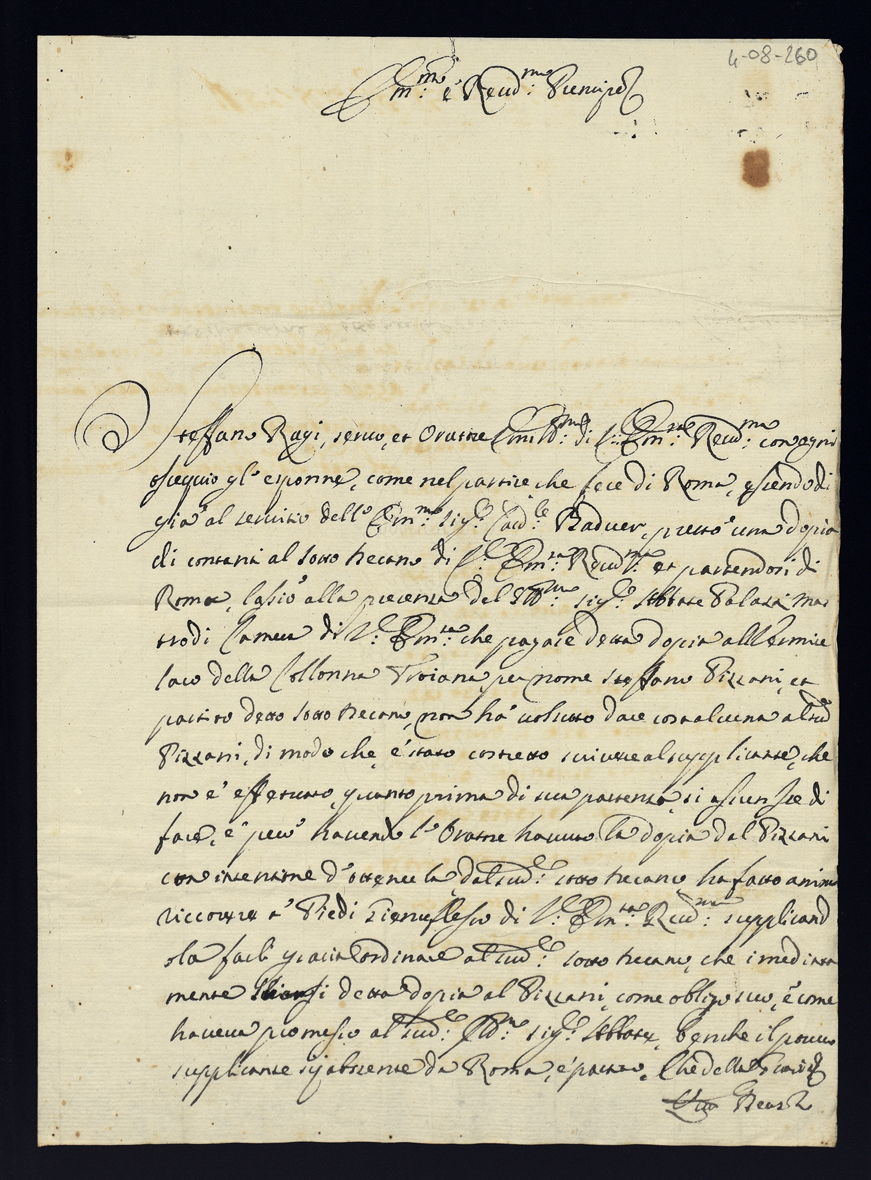 4-08-260
Em.mo e Reud.mo Prencipe
Steffano Ragi, seruo, et Oratore di V. Em.za Reud.ma con ogni
ossequio gl'esponne, come nel partire che fece di Roma, essendo di
già al seruitio dell' Em.mo Sig.r Card.le Baduer, prestò una dopia
di contanti al sotto Decano di V. Em.za Reud.ma et partendosi di
Roma, lasiò alla presenza del Ill.mo sig.r Abbate Palazi Mas
tro di Camera di V. Em.za che pagase detta dopia all
laro della Collonna Troiana per nome Steffano Pizzani, et
partito detto sotto Decano, non hà uolsuto dare cosa alcuna al sud.o
Pizzani, di modo che, è stato costretto scriuere al supplicante, che
non è effetuato, quanto prima di sua partenza, si
fare, e però hauendo l'Oratore hauuto la dopia dal Pizzani
con intentione d'ottenerla, dal sud.o sotto Decano, ha fatto animo
riccorrer a' Piedi di V. Em.za Reud.ma supplicand
ola facli gratia ordinare al sud.o sotto Decano, che imediata
mente detta dopia al Pizzani, come obligo suo, e come
haueua promesso al sud.o Ill.mo sig.r Abbate, benche il pouero
supplicante sij absente da Roma, e partito. Che della